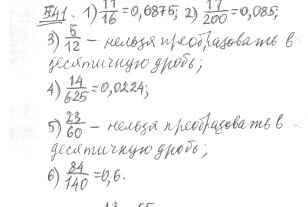 541. 1) 11/16 = 0,6875; 2) 17/200 = 0,085;
3) 5/12 – нельзя преобразовать в
десятичную дробь;
4) 14/625 = 0,0224;
5) 23/60 – нельзя преобразовать в
десятичную дробь;
6) 84/140 = 0,6.